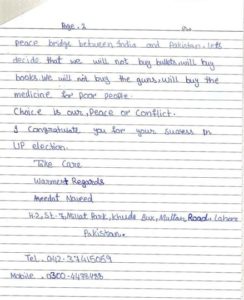 Page. 2
peace bridge between India and Pakistan. lets
decide that we will not buy bullets, will buy
books. we will not buy the guns, will buy the
medicine for poor people.
Choice is our, Peace or Conflict.
I Congratulate you for your success in
UP election
Take Care
Warmest Regards
Naveed
H-2, St-7, Milat Park, Khuda Bux, Multan Road, Lahore
Pakistan.
Tel. 042-37415059
Mobile. 0300-